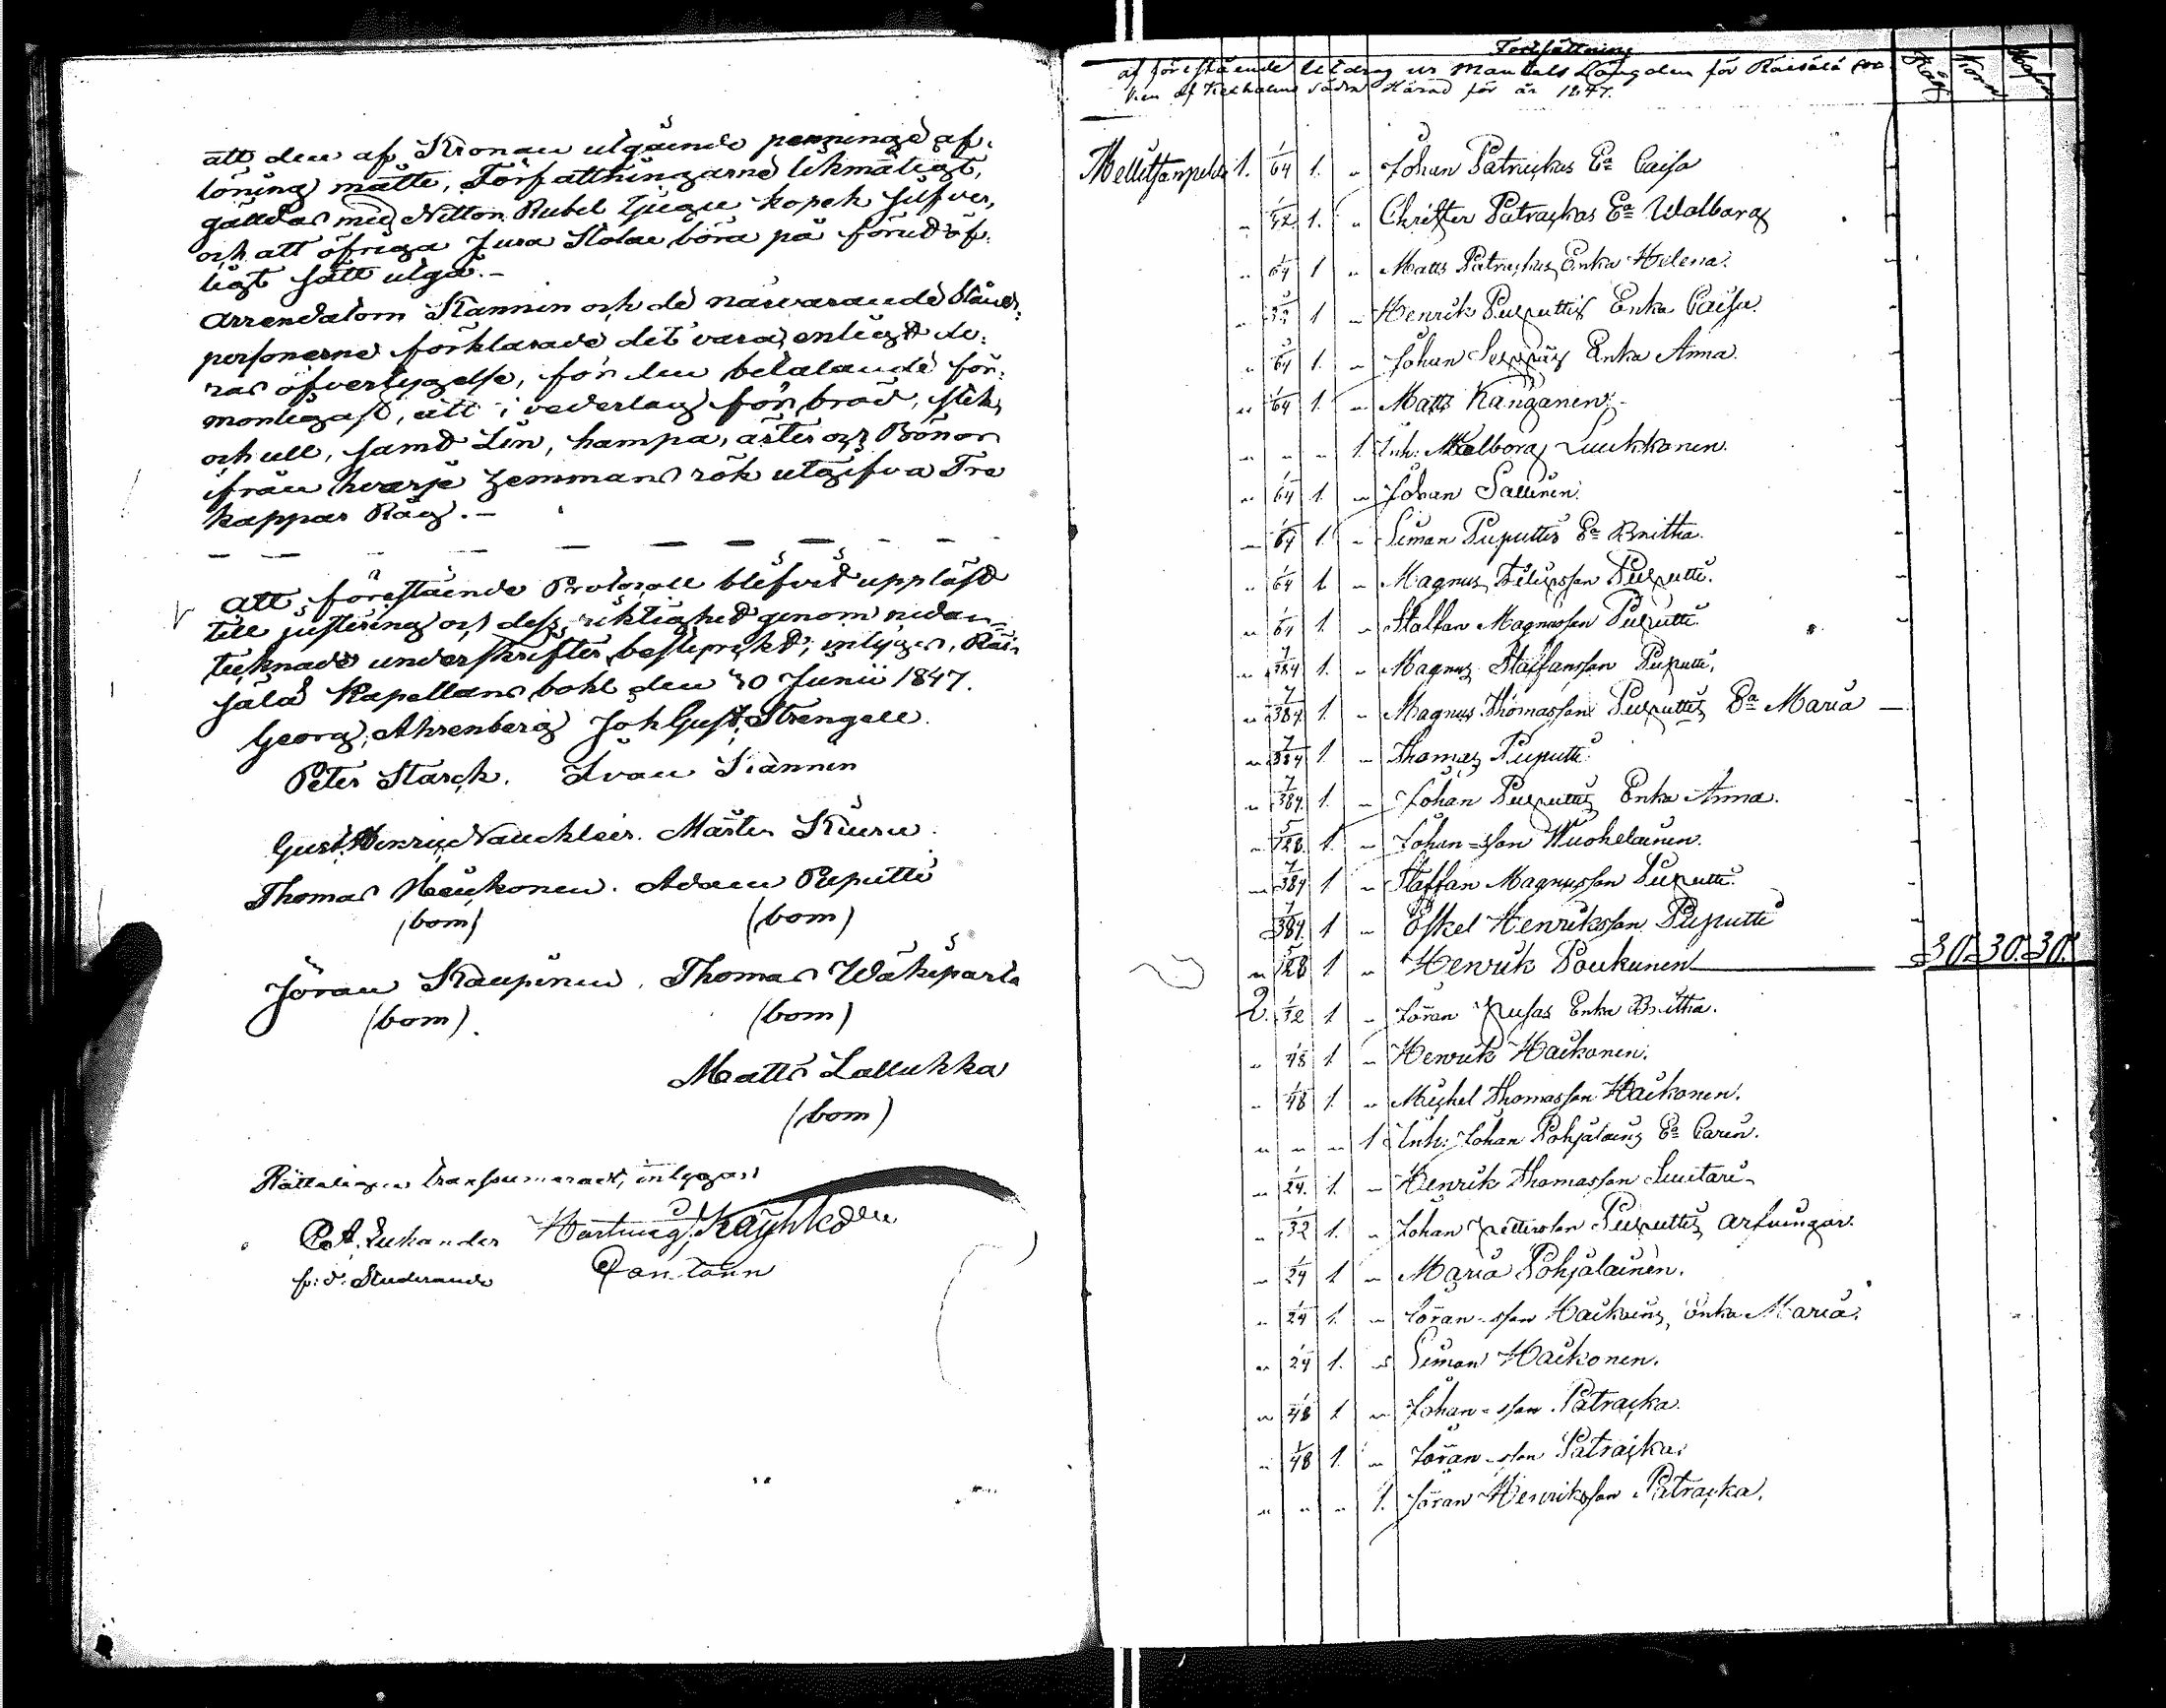 att den af Kronan utgående penninge af-
löning måtte, Författningarne likmäligt,
gälldas med Nitton Rubel tjugu kopek silfver,
och att öfriga Jura Stolae böra på förut öf-
ligt sätt utgå.-
Arrendatorn Kannin och de närvarande Stånds
personerne förklarade det vara, enligt de-
ras öfvertygelse, för den betalande för-
monligast, att i vederlag för bröd, stek,
och ull, samt Lin, hampa, ärter och Bönor
ifrån hvarje hemmans rök utgifva Tre
kappar Råg.-
Att förestående Protocoll blifvit uppläst
till justering och dess riktighet genom nedan-
tecknade underskrifter bestyrckt, intygas, Räi-
sälä Kapellans bohl den 30 Junii 1847.
Georg Ahrenberg Joh Gust. Strengell.
Peter Starck. Ivan Kannin
Gust. Henric Nauckleir. Mårten Kiuru
Thomas Heickonen. Adam Puputti
(bom) (bom)
Jöran Kaupinen. Thomas Wäkiparta
(bom). (bom)
Matts Lallukka
(bom)
Rätteligen transsumeradt, intygar
Lukander Hartwig Käyhkö
f:d: Studerande Cantann
Fortsättning
af förestående Utdrag ur Mantals Längden för Räisälä Soc
ken af Kexholms södra Härad för år 1847.
Råg Korn Hafre
Mellitsanpeldo 1. 1/64 1. " Johan Patrackas Ea Caisa
" 1/42 1. " Christer Patrackas Ea Walborg
" 1/64 1 " Matts Patrackas Enka Helena.
" 1/32 1 " Henrik Puputtis Enka Caisa.
" 1/64 1. " Johan Enka Anna.
" 1/64 1. " Matts Kanganen.-
" " " 1. Inh: Walborg Luukkonen.
" 1/64 1. " Johan Sallinen.
" 1/64 1. " Simon Puputtis Ea Britha.
" 1/64 1 " Magnus Puputti.
" 1/64 1. " Staffan Magnusson Puputti.
" 7/384 1. " Magnus Staffansson Puputti.
" 7/384 1. " Magnus Thomasson Puputtis Ea Maria
" 7/384 1. " Thomas Puputti
" 7/384. 1. " Johan Puputtis Enka Anna.
" 5/128. 1. " Johan-sson Wuohelainen.
" 7/384 1 " Staffan Magnusson Puputti.
" 7/384. 1 " Eskel Henriksson Puputti
" 5/128 1 " Henrik Poukunen 30. 30. 30.
2. 1/32 1 " Jöran Enka Britha.
" 1/48 1 " Henrik Haikonen.
" 1/48 1. " Michel Thomasson Haikonen.
" " " 1 Inh: Johan Pohjalains Ea Carin.
" 1/24. 1. " Henrik Thomasson Suutari
" 1/32 1. " Johan Puputtis Arfvingar.
" 1/24 1 " Maria Pohjalainen.
" 1/24 1. " Jöran-sson Haikoins Enka Maria.
" 1/24 1. " Simon Haikonen.
" 1/48 1 " Johan-sson Patracka.
" 1/48 1. " Jöran-sson Patracka.
" " " 1. Jöran Henriksson Patracka.